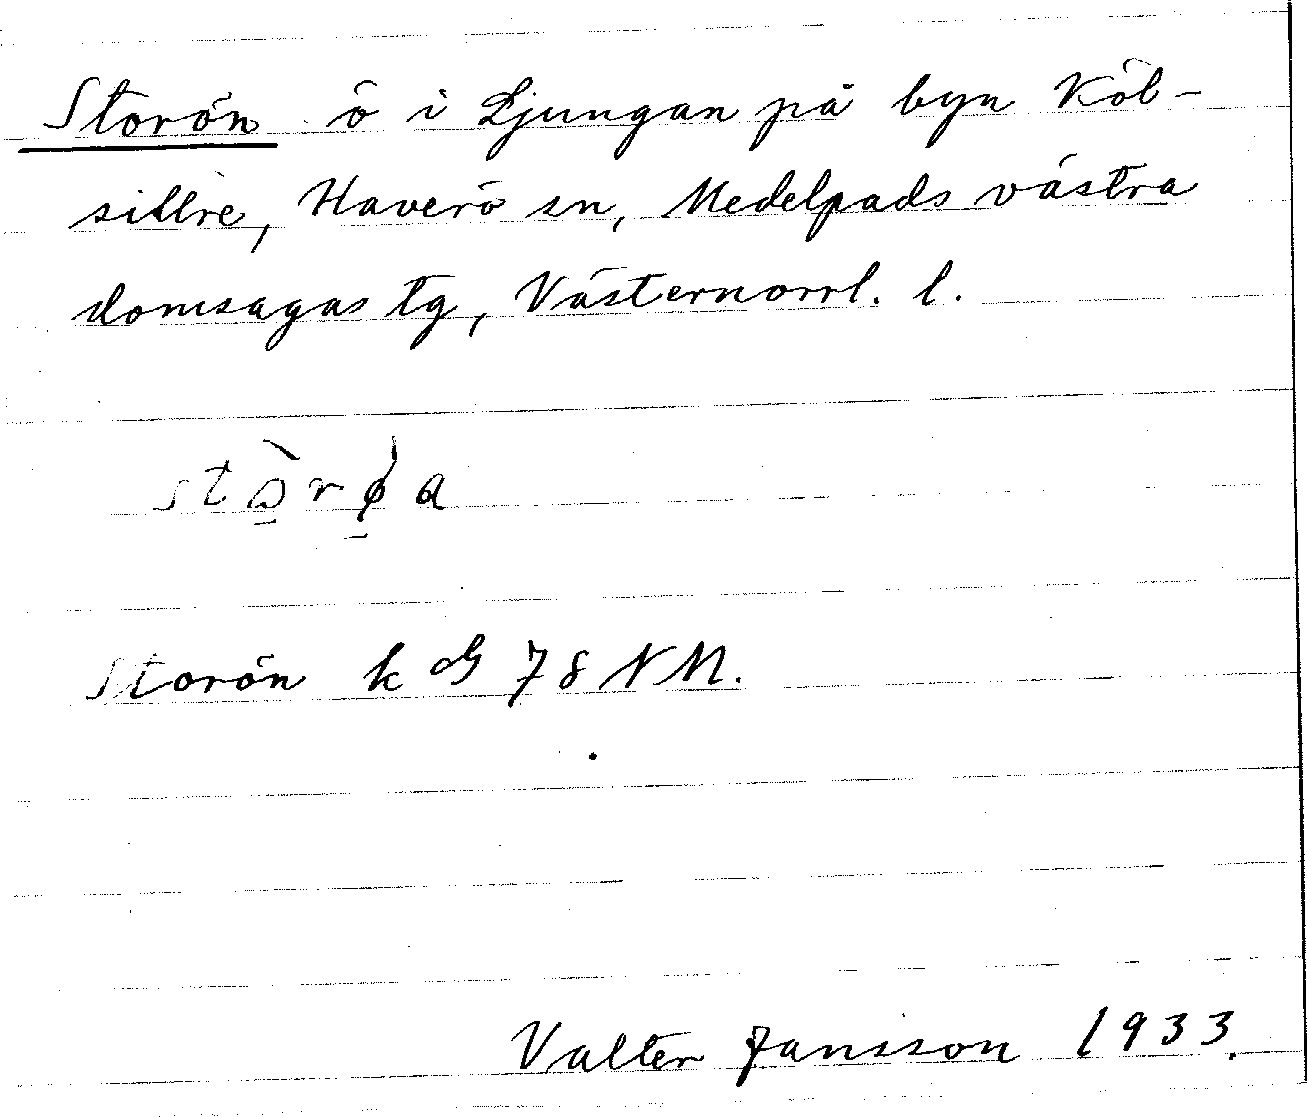 Storön ö i Ljungan på byn Köl-
sillre, Haverö sn, Medelpads västra
domsagas tg, Västernorrl. l.
Storön k G 78 NM.
Valter Jansson 1933.